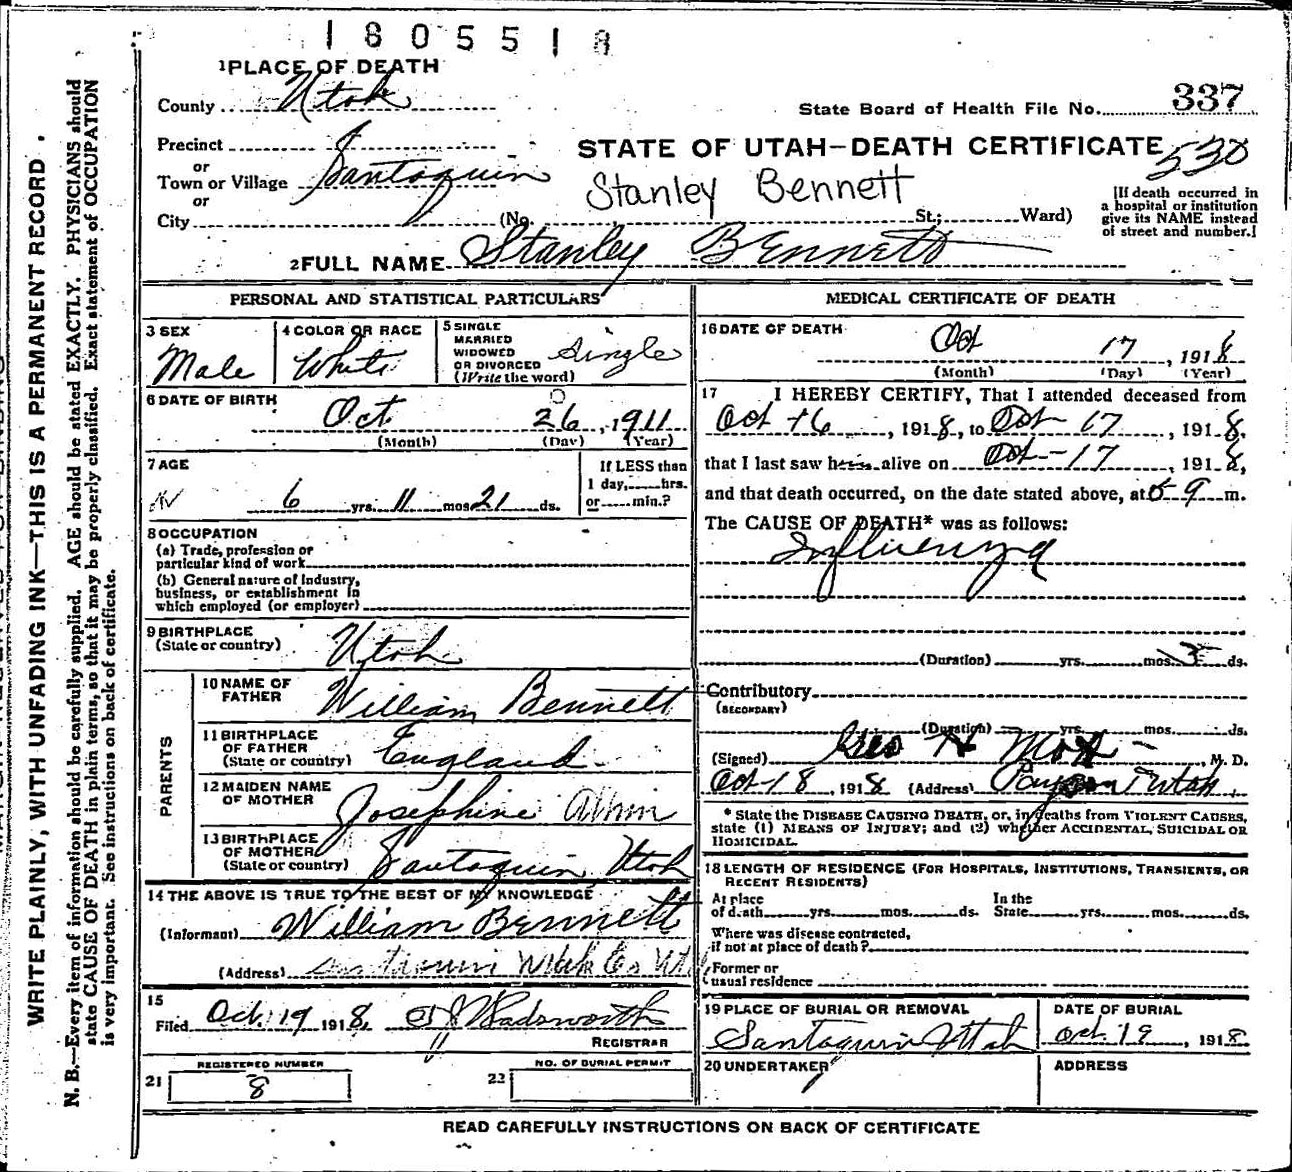 1805518
1PLACE OF DEATH
County Utah
State Board of Health File No. 337
Precinct
STATE OF UTAH—DEATH CERTIFICATE 530
or
Town or Village Santaquin
Stanley Bennett
or
City (No. St.; Ward)
[If death occurred in
a hospital or institution
give its NAME instead
of street and number.]
2FULL NAME Stanley Bennett
PERSONAL AND STATISTICAL PARTICULARS
3 SEX
Male
4 COLOR OR RACE
White
5 SINGLE
MARRIED
WIDOWED
OR DIVORCED
(Write the word)
Single
6 DATE OF BIRTH
Oct 26, 1911
(Month) (Day) (Year)
7 AGE
6 yrs. 11 mos 21 ds.
If LESS than
1 day, hrs.
or min.?
8 OCCUPATION
(a) Trade, profession or
particular kind of work
(b) General nature of Industry,
business, or establishment in
which employed (or employer)
9 BIRTHPLACE
(State or country) Utah
PARENTS
10 NAME OF
FATHER William Bennett
11 BIRTHPLACE
OF FATHER
(State or country) England
12 MAIDEN NAME
OF MOTHER Josephine
13 BIRTHPLACE
OF MOTHER
(State or country) Santaquin Utah
14 THE ABOVE IS TRUE TO THE BEST OF MY KNOWLEDGE
(Informant) William Bennett
(Address) Santaquin Utah Co Ut
15
Filed Oct. 19 1918, Wadsworth
REGISTRAR
REGISTERED NUMBER
21 8
NO. OF BURIAL PERMIT
22
MEDICAL CERTIFICATE OF DEATH
16 DATE OF DEATH
Oct 17, 1918
(Month) (Day) (Year)
17 I HEREBY CERTIFY, That I attended deceased from
Oct 16, 1918, to Oct 17, 1918,
that I last saw h alive on Oct-17, 1918,
and that death occurred, on the date stated above, at 9 m.
The CAUSE OF DEATH* was as follows:
Influenza
(Duration) yrs. mos. 3 ds.
Contributory
(SECONDARY)
(Duration) yrs. mos. ds.
(Signed) Geo H Mott, M. D.
Oct-18, 1918 (Address) Payson Utah.
* State the DISEASE CAUSING DEATH, or, in deaths from VIOLENT CAUSES,
state (1) MEANS OF INJURY; and (2) whether ACCIDENTAL, SUICIDAL OR
HOMICIDAL.
18 LENGTH OF RESIDENCE (FOR HOSPITALS, INSTITUTIONS, TRANSIENTS, OR
RECENT RESIDENTS)
At place
of death yrs. mos. ds.
In the
State yrs. mos. ds.
Where was disease contracted,
if not at place of death?
Former or
usual residence
19 PLACE OF BURIAL OR REMOVAL
Santaquin Utah
DATE OF BURIAL
Oct. 19, 1918
20 UNDERTAKER
ADDRESS
READ CAREFULLY INSTRUCTIONS ON BACK OF CERTIFICATE
WRITE PLAINLY, WITH UNFADING INK—THIS IS A PERMANENT RECORD.
N. B.—Every item of information should be carefully supplied. AGE should be stated EXACTLY. PHYSICIANS should
state CAUSE OF DEATH in plain terms, so that it may be properly classified. Exact statement of OCCUPATION
is very important. See instructions on back of certificate.